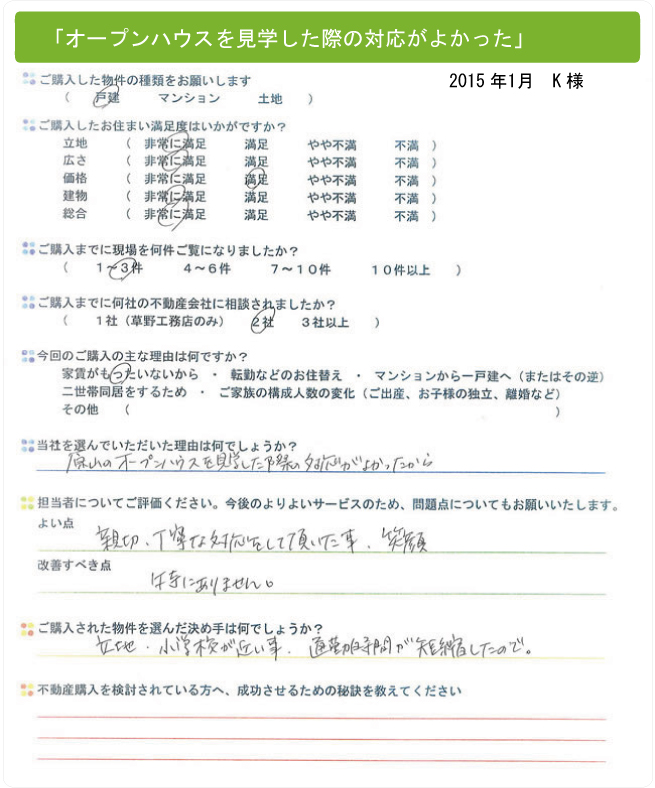 「オープンハウスを見学した際の対応がよかった」
ご購入した物件の種類をお願いします
2015年1月　K様
（　戸建　マンション　土地　）
ご購入したお住まい満足度はいかがですか？
立地　（　非常に満足　満足　やや不満　不満　）
広さ　（　非常に満足　満足　やや不満　不満　）
価格　（　非常に満足　満足　やや不満　不満　）
建物　（　非常に満足　満足　やや不満　不満　）
総合　（　非常に満足　満足　やや不満　不満　）
ご購入までに現場を何件ご覧になりましたか？
（　１～３件　４～６件　７～１０件　１０件以上　）
ご購入までに何社の不動産会社に相談されましたか？
（　１社（草野工務店のみ）　２社　３社以上　）
今回のご購入の主な理由は何ですか？
家賃がもったいないから　・　転勤などのお住替え　・　マンションから一戸建へ（またはその逆）
二世帯同居をするため　・　ご家族の構成人数の変化（ご出産、お子様の独立、離婚など）
その他　（　）
当社を選んでいただいた理由は何でしょうか？
原山のオープンハウスを見学した際の対応がよかったから
担当者についてご評価ください。今後のよりよいサービスのため、問題点についてもお願いいたします。
よい点
親切、丁寧な対応をして頂いた事、笑顔
改善すべき点
特にありません。
ご購入された物件を選んだ決め手は何でしょうか？
立地、小学校が近い事、通勤時間が短縮したので。
不動産購入を検討されている方へ、成功させるための秘訣を教えてください